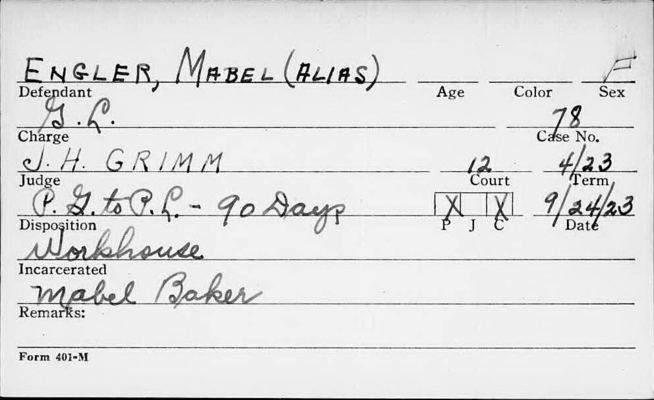 ENGLER, MABEL (ALIAS) F
Defendant Age Color Sex
G. L. 78
Charge Case No.
J. H. GRIMM 12 4/23
Judge Court Term
P. G. to P. L. - 90 Days X X 9/24/23
Disposition P J C Date
Workhouse
Incarcerated
Mabel Baker
Remarks:
Form 401-M